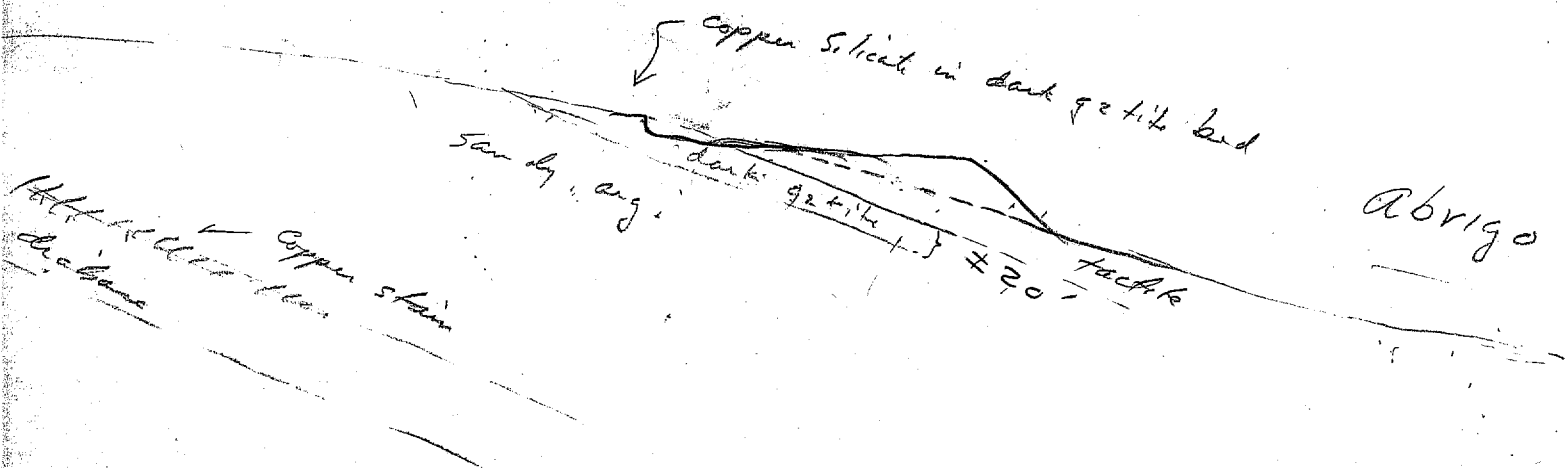 copper silicate in dark qztite bed
sandy, arg.
dark
qztite
± 20'
tactite
Abrigo
← Copper stain
diabase